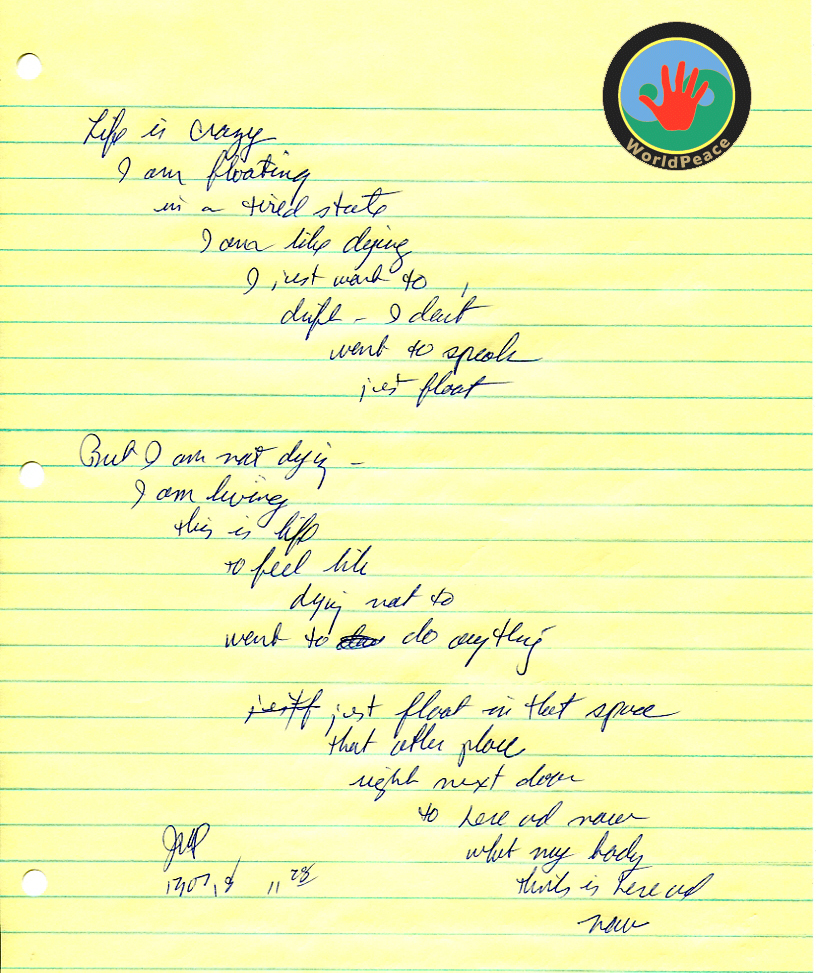 WorldPeace
Life is crazy
I am floating
in a tired state
I am like dying
I just want to
drift - I don't
want to speak
just float
But I am not dying -
I am living
this is life
to feel like
dying not to
want to do anything
just float in that space
that other place
right next door
to here and now
what my body
thinks is here and
now
JWP
11 28